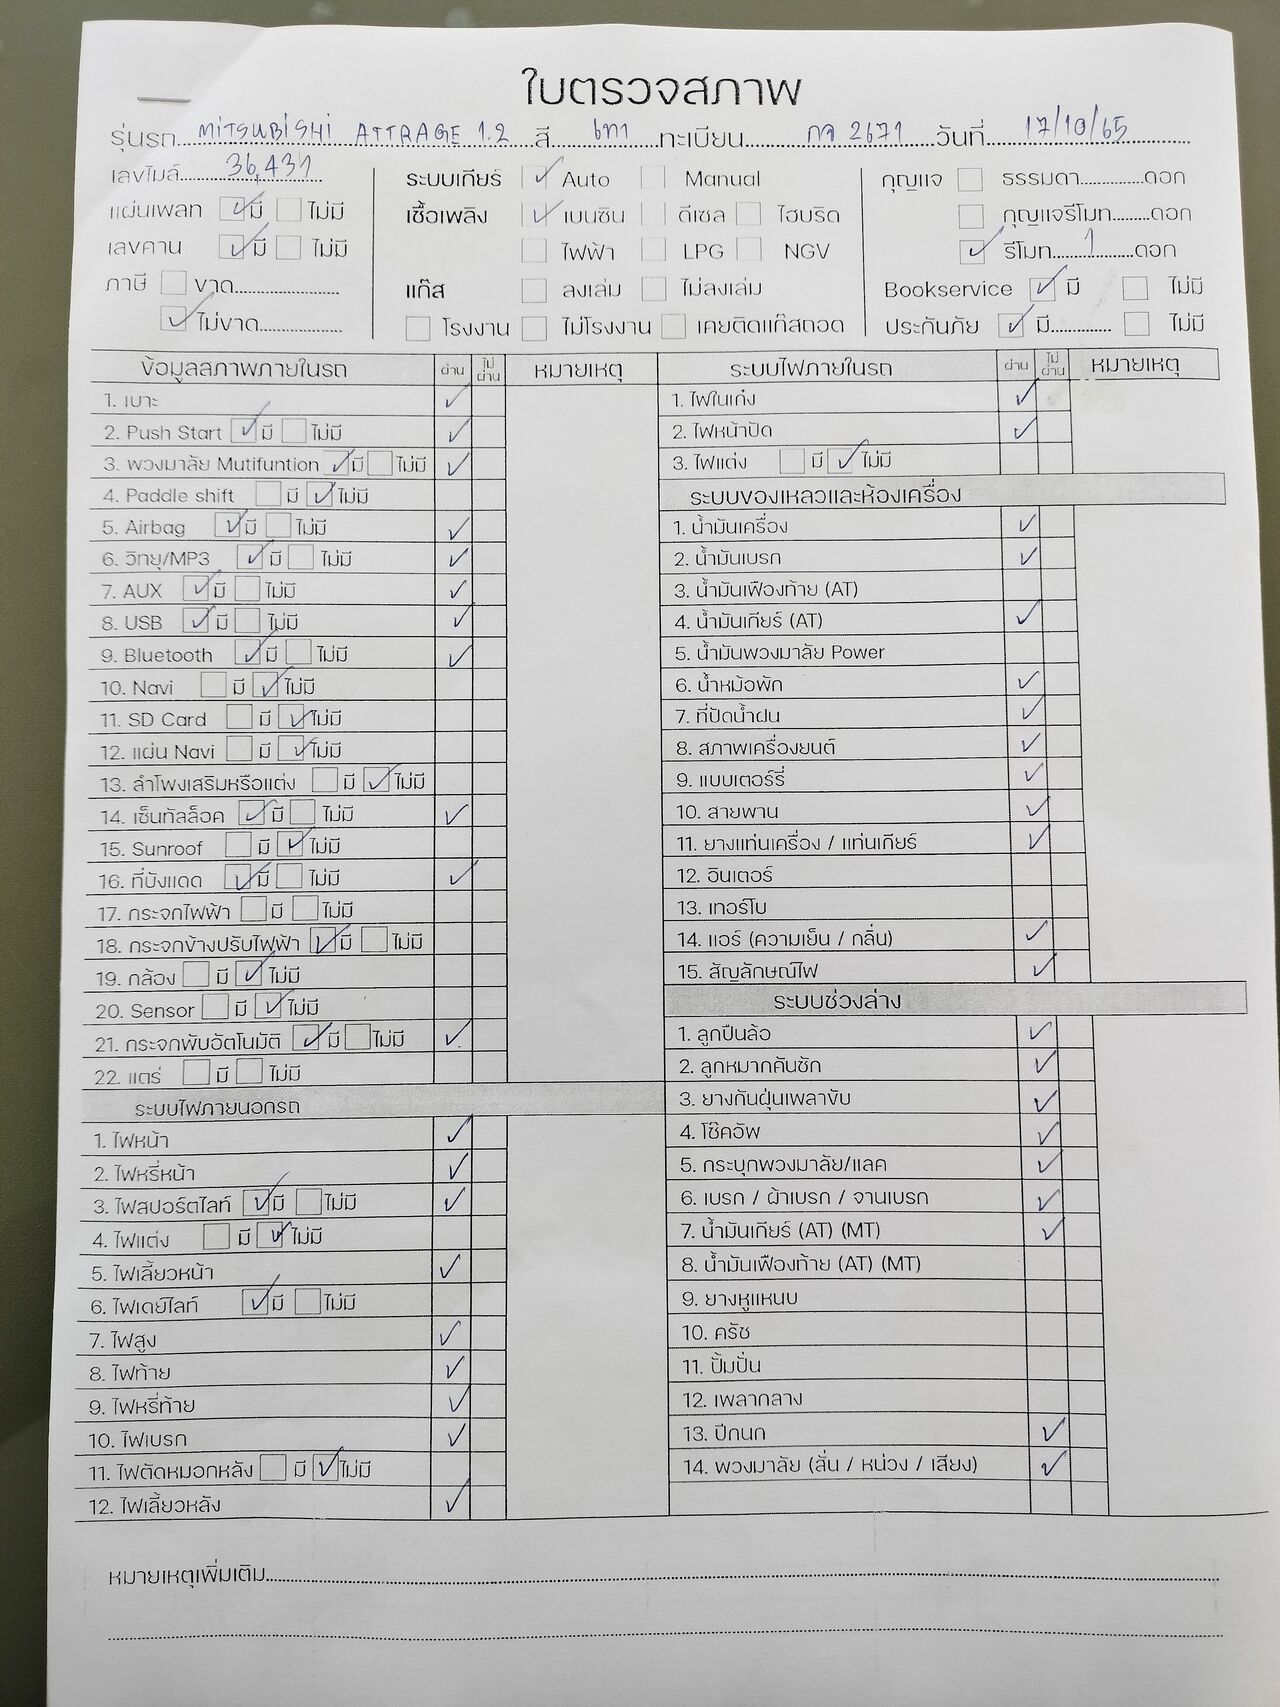 ใบตรวจสภาพ
รุ่นรถ MITSUBISHI ATTRAGE 1.2 สี เทา ทะเบียน กจ 2671 วันที่ 17/10/65
เลขไมล์ 36,431
แผ่นเพลท ✓ มี ไม่มี
เลขคาน ✓ มี ไม่มี
ภาษี ขาด
✓ ไม่ขาด
ระบบเกียร์ ✓ Auto Manual
เชื้อเพลิง ✓ เบนซิน ดีเซล ไฮบริด
ไฟฟ้า LPG NGV
แก๊ส ลงเล่ม ไม่ลงเล่ม
โรงงาน ไม่โรงงาน เคยติดแก๊สถอด
กุญแจ ธรรมดา ดอก
กุญแจรีโมท ดอก
✓ รีโมท 1 ดอก
Bookservice ✓ มี ไม่มี
ประกันภัย ✓ มี ไม่มี
ข้อมูลสภาพภายในรถ ผ่าน ไม่ผ่าน หมายเหตุ
1. เบาะ ✓
2. Push Start ✓ มี ไม่มี ✓
3. พวงมาลัย Mutifuntion ✓ มี ไม่มี ✓
4. Paddle shift มี ✓ ไม่มี
5. Airbag ✓ มี ไม่มี ✓
6. วิทยุ/MP3 ✓ มี ไม่มี ✓
7. AUX ✓ มี ไม่มี ✓
8. USB ✓ มี ไม่มี ✓
9. Bluetooth ✓ มี ไม่มี ✓
10. Navi มี ✓ ไม่มี
11. SD Card มี ✓ ไม่มี
12. แผ่น Navi มี ✓ ไม่มี
13. ลำโพงเสริมหรือแต่ง มี ✓ ไม่มี
14. เซ็นทัลล็อค ✓ มี ไม่มี ✓
15. Sunroof มี ✓ ไม่มี
16. ที่บังแดด ✓ มี ไม่มี ✓
17. กระจกไฟฟ้า มี ไม่มี
18. กระจกข้างปรับไฟฟ้า ✓ มี ไม่มี
19. กล้อง มี ✓ ไม่มี
20. Sensor มี ✓ ไม่มี
21. กระจกพับอัตโนมัติ ✓ มี ไม่มี ✓
22. แตร่ มี ไม่มี
ระบบไฟภายนอกรถ
1. ไฟหน้า ✓
2. ไฟหรี่หน้า ✓
3. ไฟสปอร์ตไลท์ ✓ มี ไม่มี ✓
4. ไฟแต่ง มี ✓ ไม่มี
5. ไฟเลี้ยวหน้า ✓
6. ไฟเดย์ไลท์ ✓ มี ไม่มี
7. ไฟสูง ✓
8. ไฟท้าย ✓
9. ไฟหรี่ท้าย ✓
10. ไฟเบรก ✓
11. ไฟตัดหมอกหลัง มี ✓ ไม่มี
12. ไฟเลี้ยวหลัง ✓
ระบบไฟภายในรถ ผ่าน ไม่ผ่าน หมายเหตุ
1. ไฟในเก๋ง ✓
2. ไฟหน้าปัด ✓
3. ไฟแต่ง มี ✓ ไม่มี
ระบบของเหลวและห้องเครื่อง
1. น้ำมันเครื่อง ✓
2. น้ำมันเบรก ✓
3. น้ำมันเฟืองท้าย (AT)
4. น้ำมันเกียร์ (AT) ✓
5. น้ำมันพวงมาลัย Power
6. น้ำหม้อพัก ✓
7. ที่ปัดน้ำฝน ✓
8. สภาพเครื่องยนต์ ✓
9. แบบเตอร์รี่ ✓
10. สายพาน ✓
11. ยางแท่นเครื่อง / แท่นเกียร์ ✓
12. อินเตอร์
13. เทอร์โบ
14. แอร์ (ความเย็น / กลิ่น) ✓
15. สัญลักษณ์ไฟ ✓
ระบบช่วงล่าง
1. ลูกปืนล้อ ✓
2. ลูกหมากคันชัก ✓
3. ยางกันฝุ่นเพลาขับ ✓
4. โช๊คอัพ ✓
5. กระบุกพวงมาลัย/แลค ✓
6. เบรก / ผ้าเบรก / จานเบรก ✓
7. น้ำมันเกียร์ (AT) (MT) ✓
8. น้ำมันเฟืองท้าย (AT) (MT)
9. ยางหูแหนบ
10. ครัช
11. ปั้มปั่น
12. เพลากลาง
13. ปีกนก ✓
14. พวงมาลัย (สั่น / หน่วง / เสียง) ✓
หมายเหตุเพิ่มเติม